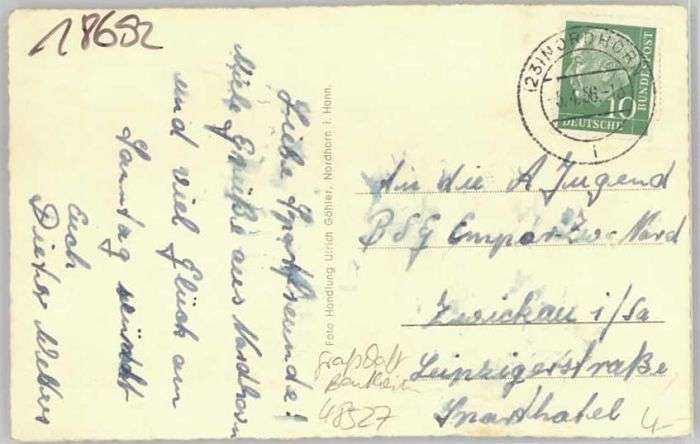 18652
Liebe Sportfreunde!
Viele Grüße aus Nordhorn
und viel Glück am
Sonntag wünscht
Euch
Dieter Weber
Foto Handlung Ulrich Göhler, Nordhorn i. Hann.
(23) NORDHORN
-5.4.56.-
i
10
DEUTSCHE
BUNDESPOST
An die A Jugend
BSG Empor Zw. Nord
Zwickau i/Sa
Leipzigerstraße
Sporthotel
Grafschaft
Bentheim
48527
4,-